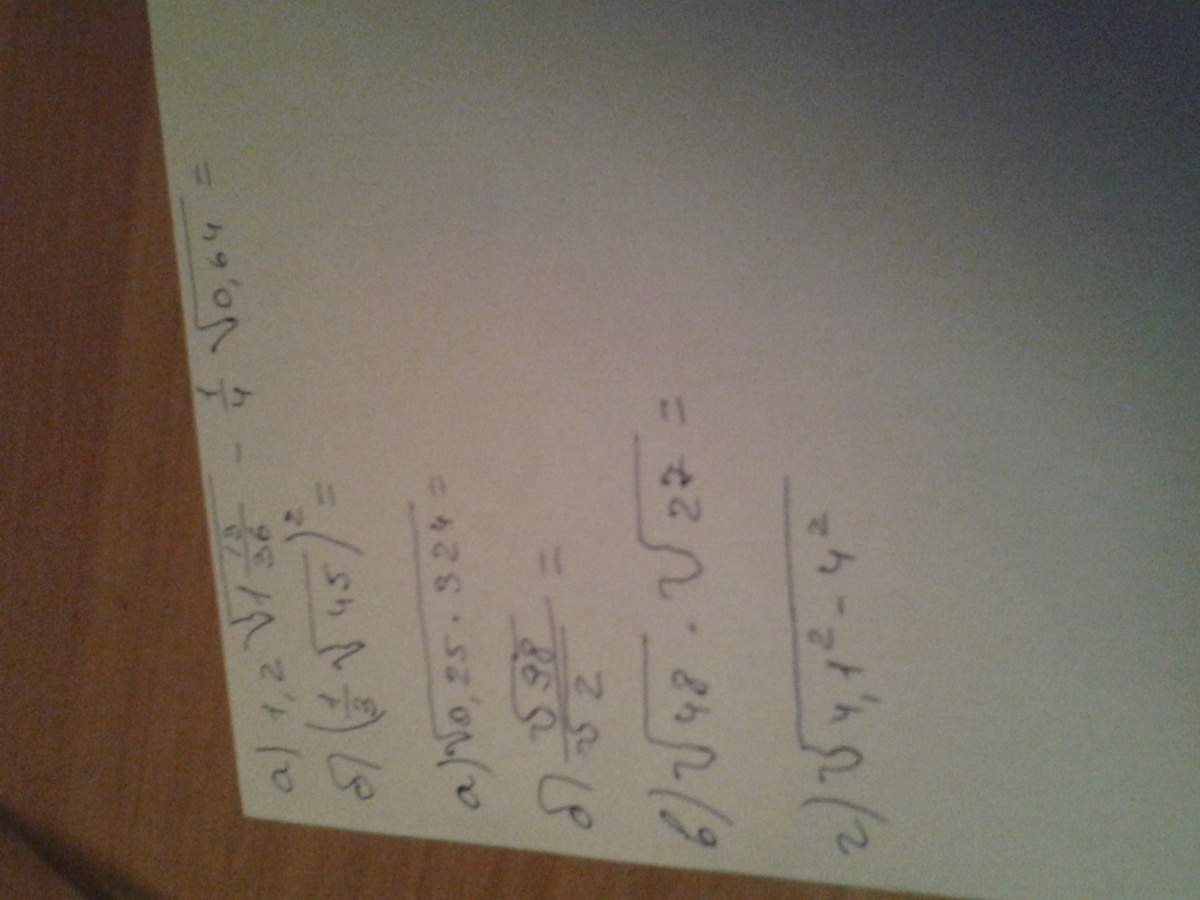 а) 1,2 √(1 13/36) - 1/4 √0,64 =
б) (1/3 √45)² =
а) √0,25 · 324 =
б) √98 / √2 =
в) √48 · √27 =
г) √4,1² - 4²